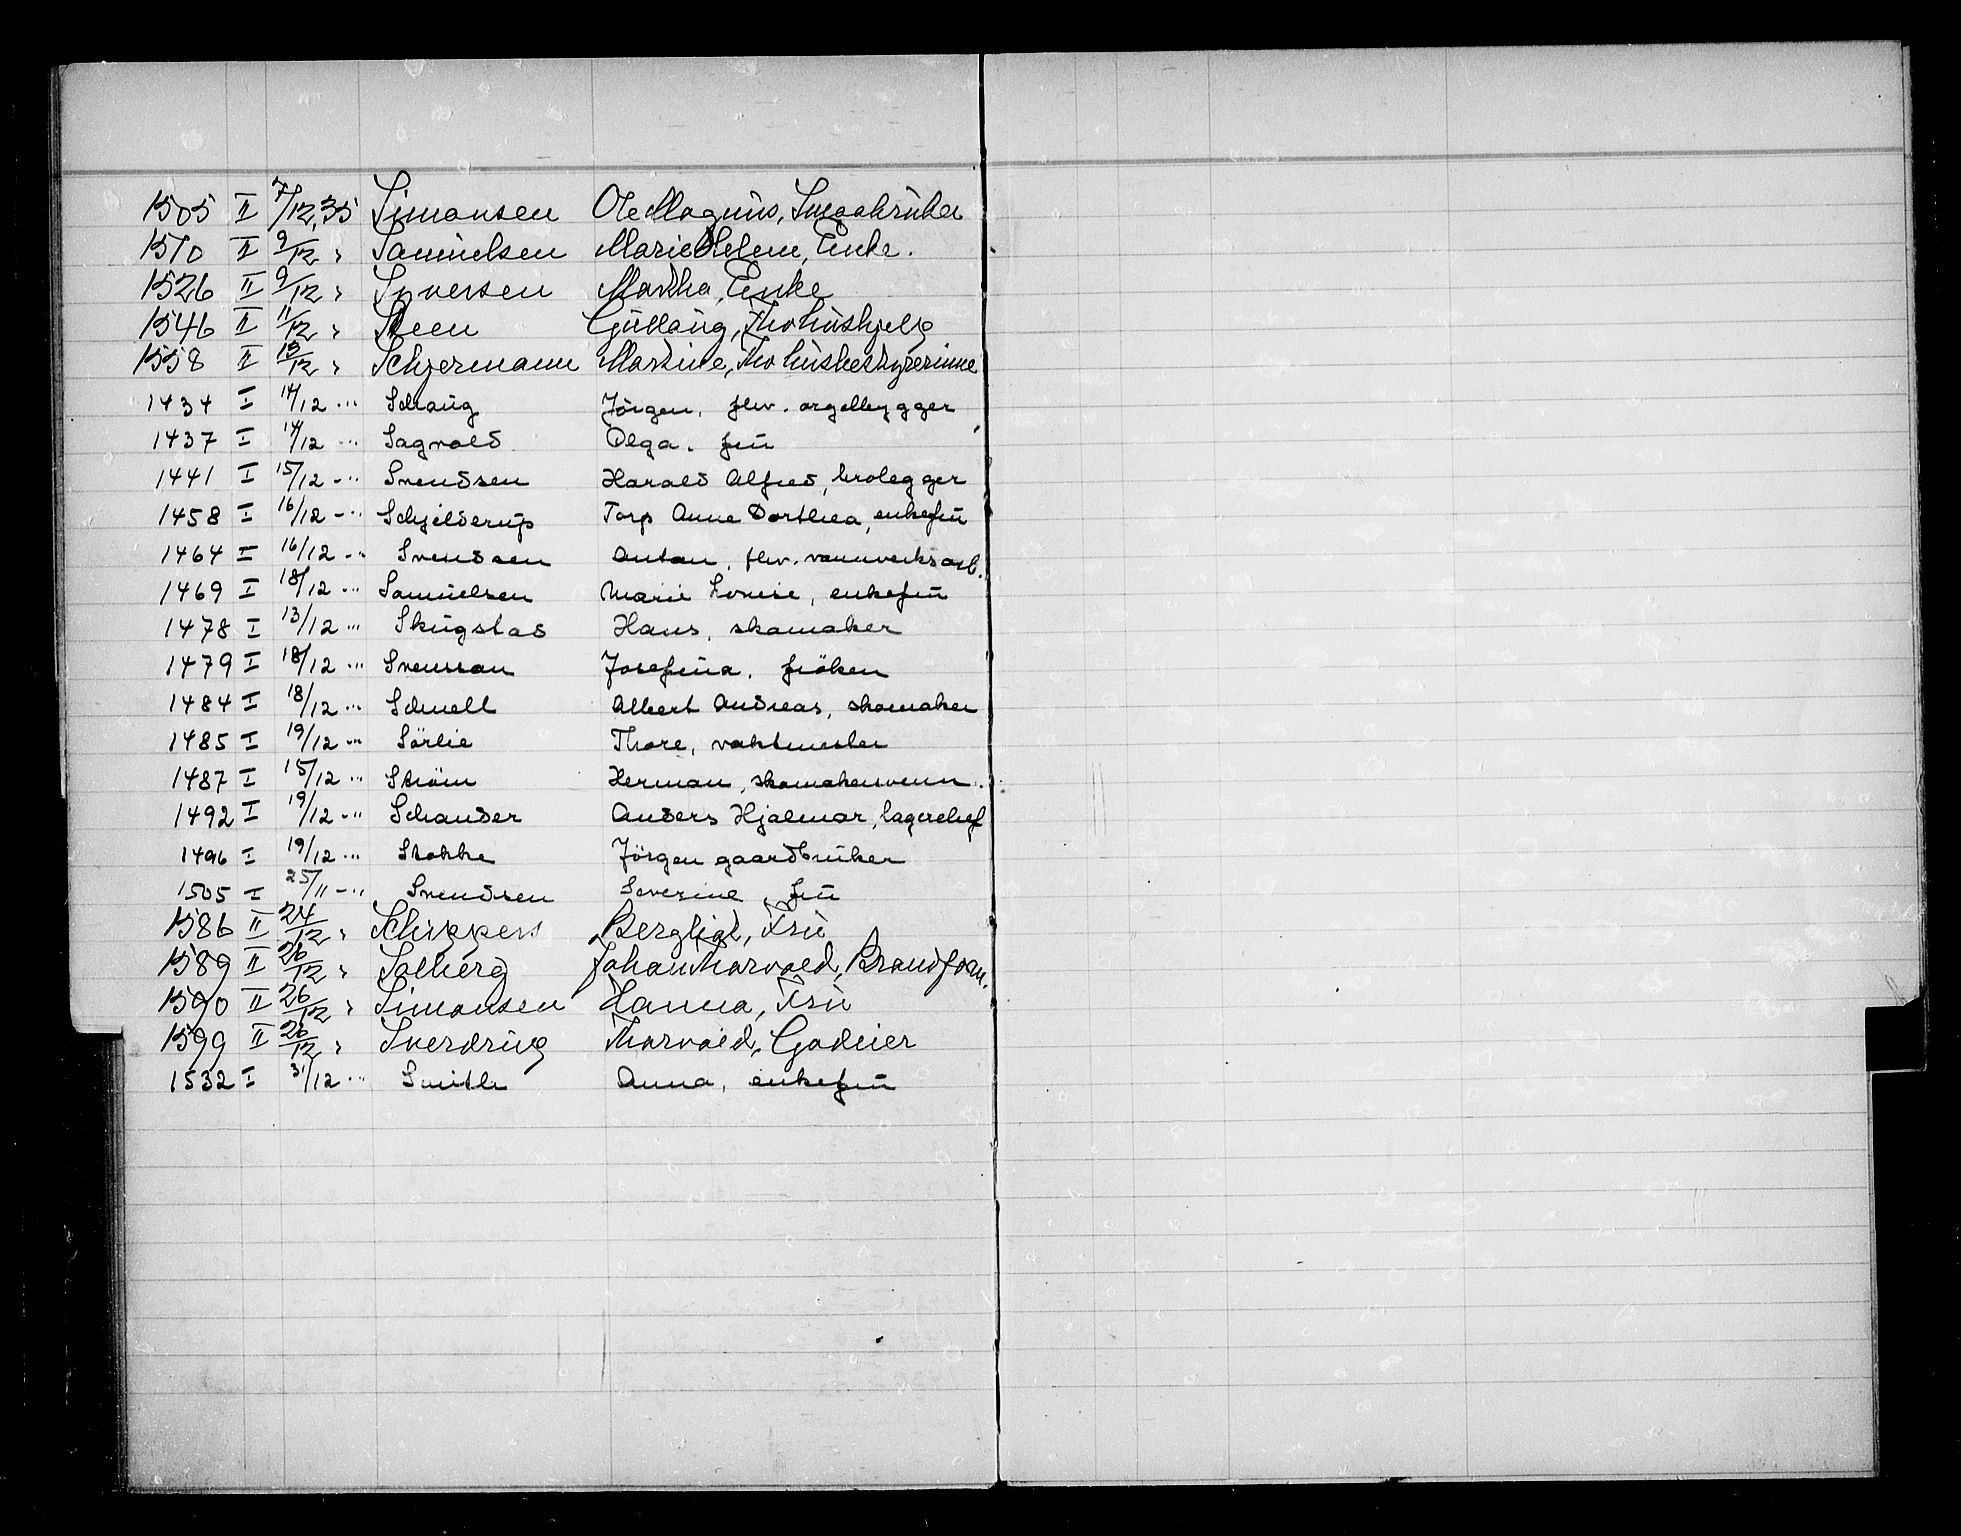 1505 II 7/12.35 Simonsen Ole Magnus, Smaabruker
1510 II 9/12 " Samuelsen Marie Helene, Enke.
1526 II 9/12 " Syversen Martha, Enke
1546 II 11/12 " Steen Gudlaug, Fhv Hushjelp
1558 II 13/12 " Schjermann Martine, Fhv Husbestyrerinne
1434 I 14/12 -"- Schaug Jörgen, fhv. orgelbygger
1437 I 14/12 -"- Sagvold Olga. fru
1441 I 15/12 -"- Svendsen Harald Alfred, brolegger
1458 I 16/12 -"- Schjelderup Torp Anne Dorthea, enkefru
1464 I 16/12 -"- Svendsen Anton, fhv. vannverksarb.
1469 I 18/12 -"- Samuelsen Marie Lovise, enkefru
1478 I 13/12 -"- Skugstad Hans, skomaker
1479 I 18/12 -"- Svensson Josefina, fröken
1484 I 18/12 -"- Schnell Albert Andreas, skomaker
1485 I 19/12 -"- Sörlie Thore, vaktmester
1487 I 15/12 -"- Ström Herman, skomakersvenn.
1492 I 19/12 -"- Schander Anders Hjalmar, lagerchef
1496 I 19/12 -"- Stokke Jörgen gaardbruker
1505 I 25/11 -"- Svendsen Severine, fru
1586 II 24/12 " Schippers Bergliot, Fru
1589 II 26/12 " Solberg Johan Thorvald, Brandform.
1590 II 26/12 " Simonsen Hanna, Fru
1599 II 26/12 " Sverdrup Thorvald, Godeier
1532 I 31/12 -"- Smith Anna, enkefru